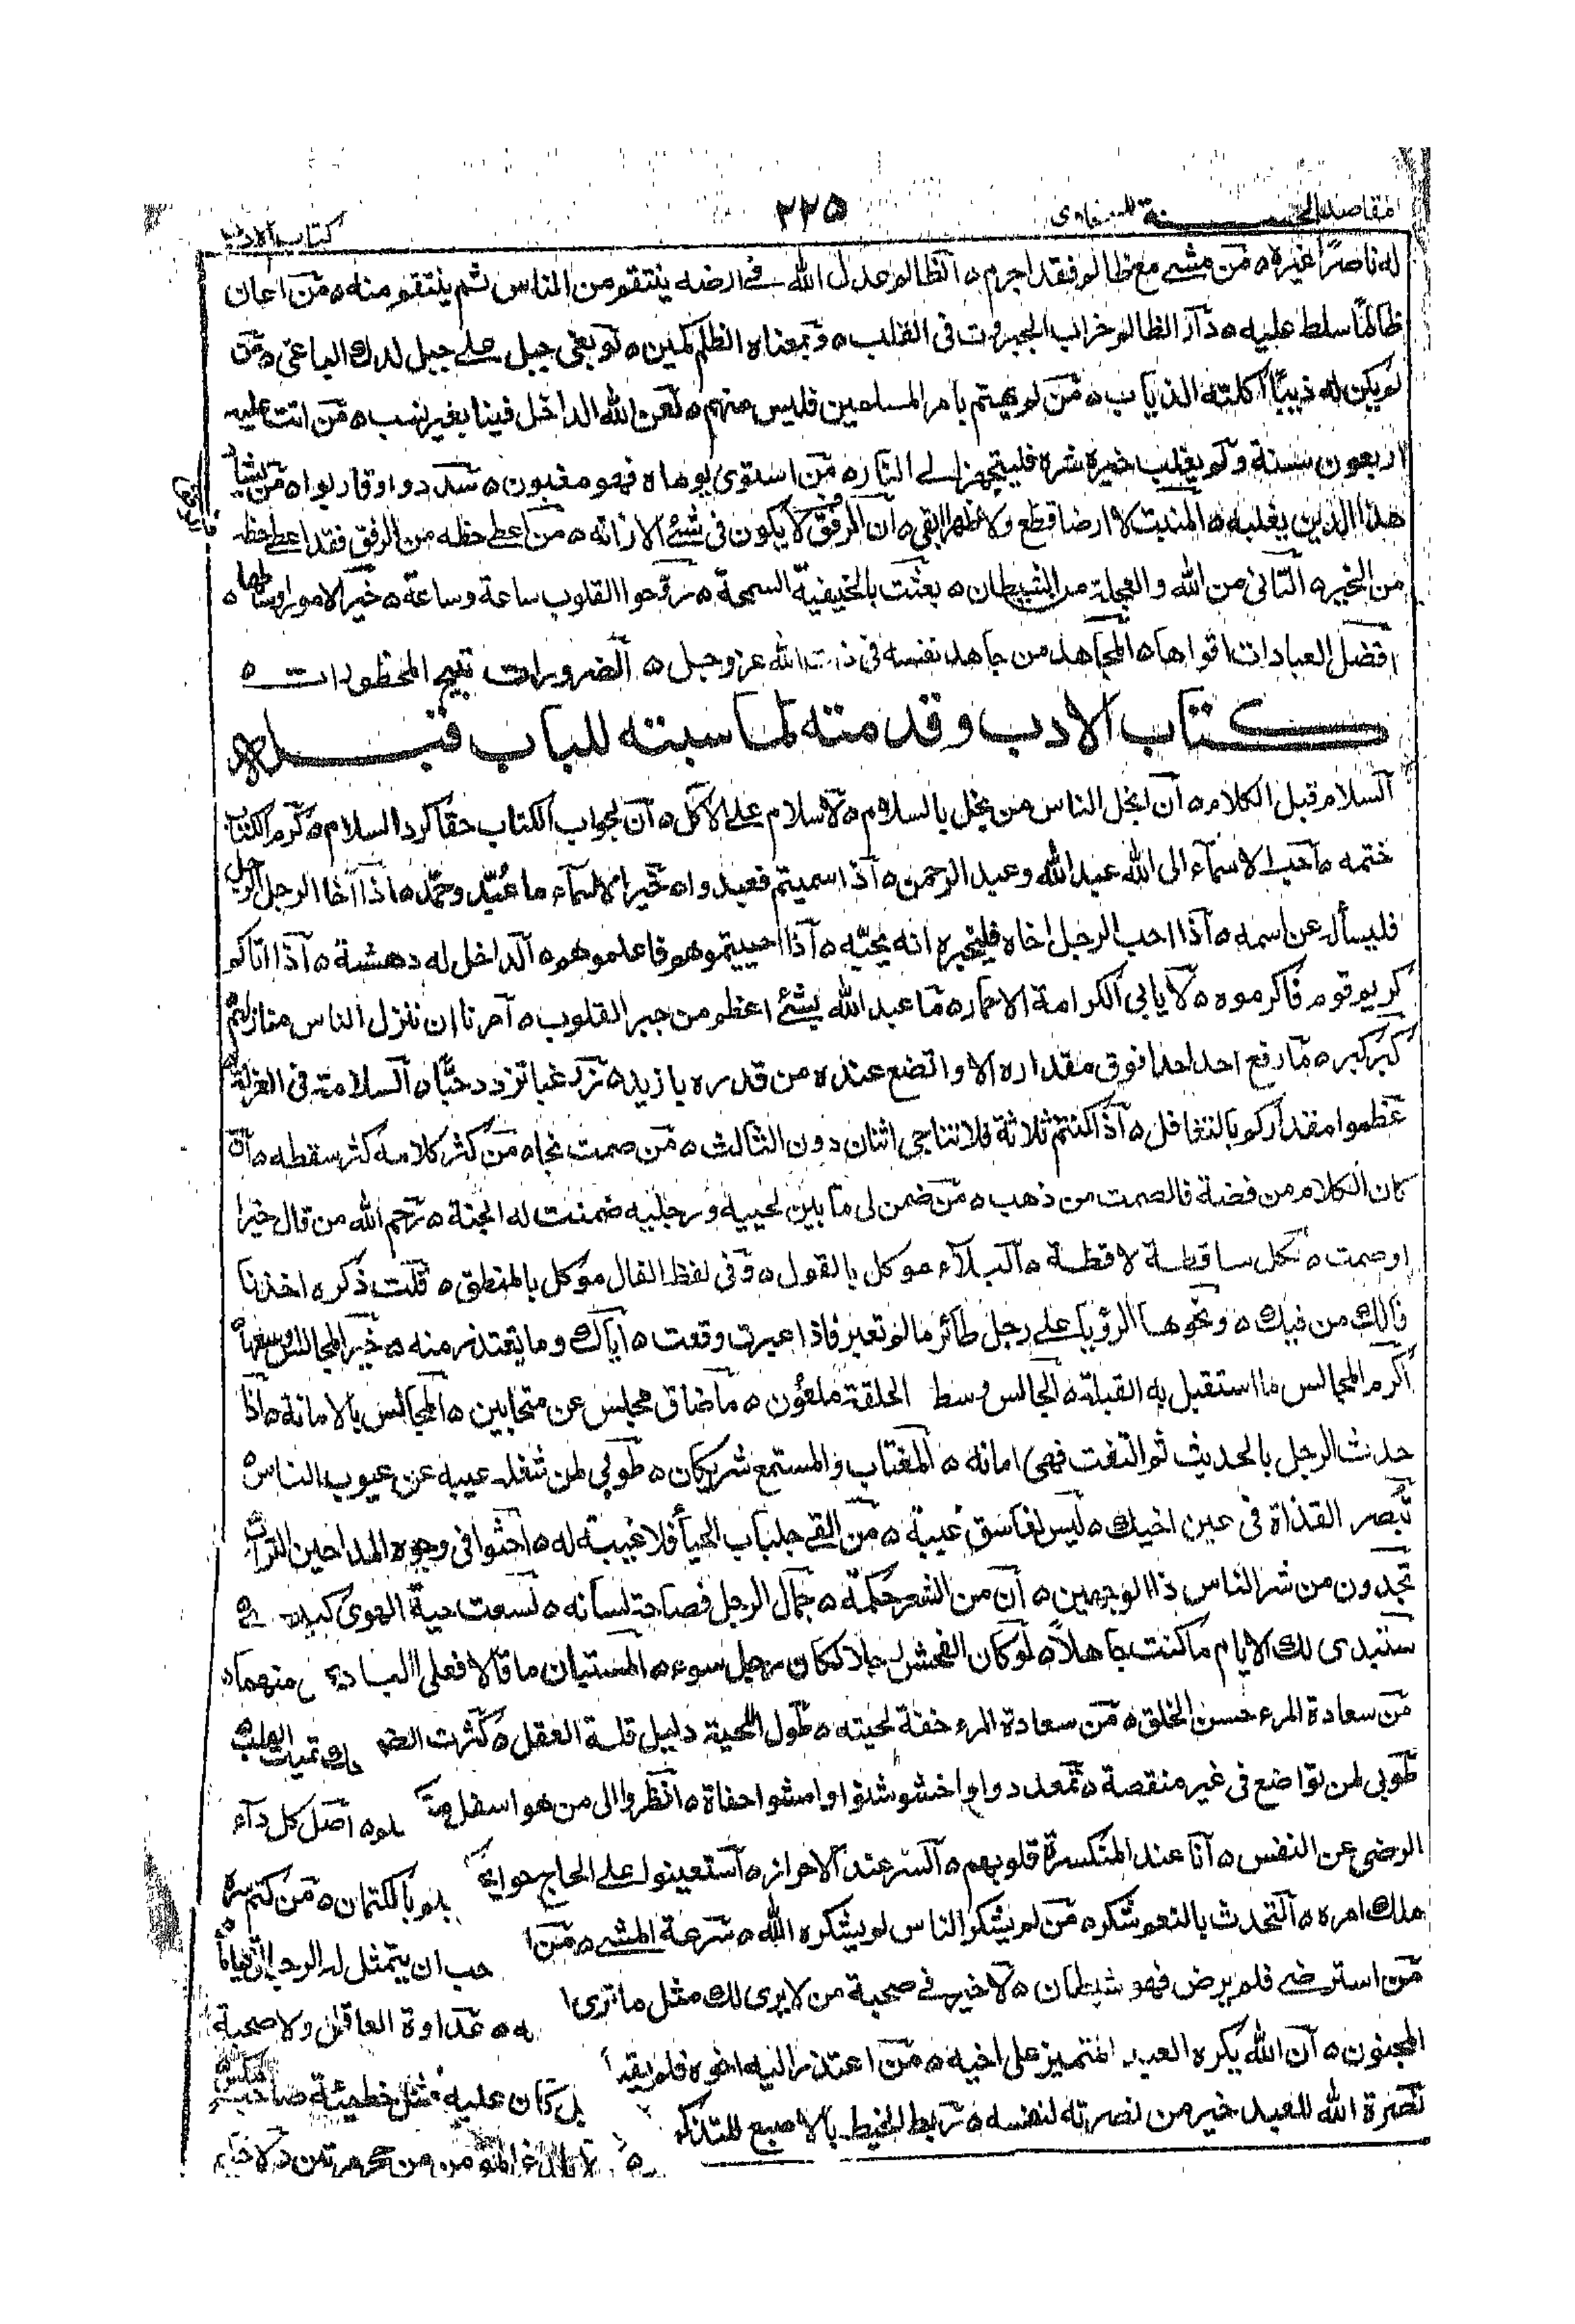 مقاصد الحسنة للسخاوى ٢٢٥ كتاب الادب
له ناصرًا غيره ه مَن مشے مع ظالم فقد اجرم ه الظالم عدل الله فے ارضه ينتقم من الناس ثم ينتقم منه ه مَن اعان
ظالمًا سلط عليه ه دار الظالم خراب الجبروت فى القلب ه وبمعناه الظلم كمين ه لو بغى جبل علے جبل لدك الباغى ه مَن
لم يكن له ذيبًا اكلته الذياب ه مَن لم يهتم بامر المسلمين فليس منهم ه لعن الله الداخل فينا بغير نسب ه مَن اتت عليه
اربعون سنة ولم يغلب خيره شره فليتجهز الے النار ه مَن استوى يوماه فهو مغبون ه سددوا وقاربوا ه مَن يشاد
هذا الدين يغلبه ه المنبت لا ارضا قطع ولا ظهرا ابقى ه ان الرفق لا يكون فى شئے الا زانه ه من اعطے حظه من الرفق فقد اعطے حظه
من الخير ه التانى من الله والعجلة من الشيطان ه بعثت بالحنيفية السمحة ه روحوا القلوب ساعة وساعة ه خير الامور اوساطها ه
افضل العبادات اقواها ه المجاهد من جاهد نفسه فى ذات الله عز وجل ه الضرورات تبيح المحظورات ه
كتاب الادب وقدمته لمناسبته للباب قبله
السلام قبل الكلام ه ان ابخل الناس من بخل بالسلام ه لا سلام علے الاكل ه ان لجواب الكتاب حقا كرد السلام ه كرم الكتاب
ختمه ه احب الاسماء الى الله عبد الله وعبد الرحمن ه اذا سميتم فعبدوا ه خير الاسماء ما عُبّد وحمّد ه اذا آخا الرجل الرجل
فليسأل عن اسمه ه اذا احب الرجل اخاه فليخبره انه يحبّه ه اذا احببتموهم فاعلموهم ه الداخل له دهشة ه اذا اتاكم
كريم قوم فاكرموه ه لا يابى الكرامة الا حمار ه ما عبد الله بشئے اعظم من جبر القلوب ه امرنا ان ننزل الناس منازلهم
كبر كبر ه ما رفع احد احدا فوق مقداره الا واتضع عنده من قدره بازيد ه زر غبا تزدد حبًّا ه السلامة فى العزلة
عظموا مقداركم بالتغافل ه اذا كنتم ثلاثة فلا يتناجى اثنان دون الثالث ه من صمت نجا ه من كثر كلامه كثر سقطه ه ان
كان الكلام من فضة فالصمت من ذهب ه مَن ضمن لى ما بين لحييه ورجليه ضمنت له الجنة ه رحم الله من قال خيرا
او صمت ه لكل ساقطة لاقطة ه البلاء موكل بالقول ه وفى لفظ الفال موكل بالمنطق ه قلت ذكره اخذنا
فالك من فيك ه ونحوها الرؤيا علے رجل طائر ما لم تعبر فاذا عبرت وقعت ه اياك وما يعتذر منه ه خير المجالس اوسعها
اكرم المجالس ما استقبل به القبلة ه الجالس وسط الحلقة ملعون ه ما ضاق مجلس عن متحابين ه المجالس بالامانة ه اذا
حدث الرجل بالحديث ثم التفت فهى امانه ه المغتاب والمستمع شريكان ه طوبى لمن شغله عيبه عن عيوب الناس ه
تبصر القذاة فى عين اخيك ه ليس لفاسق غيبة ه من القے جلباب الحيأ فلا غيبة له ه احثوا فى وجوه المداحين التراب
تجدون من شر الناس ذا الوجهين ه ان من الشعر حكمة ه جمال الرجل فصاحة لسانه ه لسعت حية الهوى كبدى ه
ستبدى لك الايام ما كنت جاهلاً ه لو كان الفحش رجلا لكان رجل سوء ه المستبان ما قالا فعلى البادى منهما ه
من سعادة المرء حسن الخلق ه من سعادة المرء خفة لحيته ه طول اللحية دليل قلة العقل ه كثرت الضحك تميت القلب
طوبى لمن تواضع فى غير منقصة ه تمعددوا واخشوشنوا وامشوا حفاة ه انظروا الى من هو اسفل ه اصل كل داء
الرضى عن النفس ه انا عند المنكسرة قلوبهم ه السر عند الاحرار ه استعينوا على انجاح حوايجكم بالكتمان ه من كتم سره
ملك امره ه التحدث بالنعم شكر ه من لم يشكر الناس لم يشكر الله ه سرعة المشے ه من احب ان يتمثل له الرجال قياماً
من استرضے فلم يرض فهو شيطان ه لا خير فے صحبة من لا يرى لك مثل ما ترى له ه عداوة العاقل ولا صحبة
المجنون ه ان الله يكره العبد المتميز على اخيه ه من اعتذر اليه اخوه فلم يقبل كان عليه مثل خطيئة صاحب مكس
نصرة الله للعبد خير من نصرته لنفسه ه ربط الخيط بالاصبع للتذكر ه لا يلدغ المؤمن من جحر مرتين